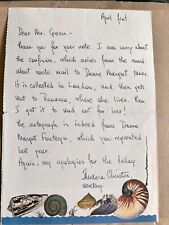 April 21st.
Dear Mr. Green -
Thank you for your note. I am sorry about
the confusion, which arises from the round-
about route mail to Dame Margot takes.
It is collected in London, and then gets
sent to Panama, where she lives, then
I get it to send out for her!
The autograph is indeed from Dame
Margot Fonteyn, which you requested
last year.
Again, my apologies for the delay
Theodora Christon,
secretary.